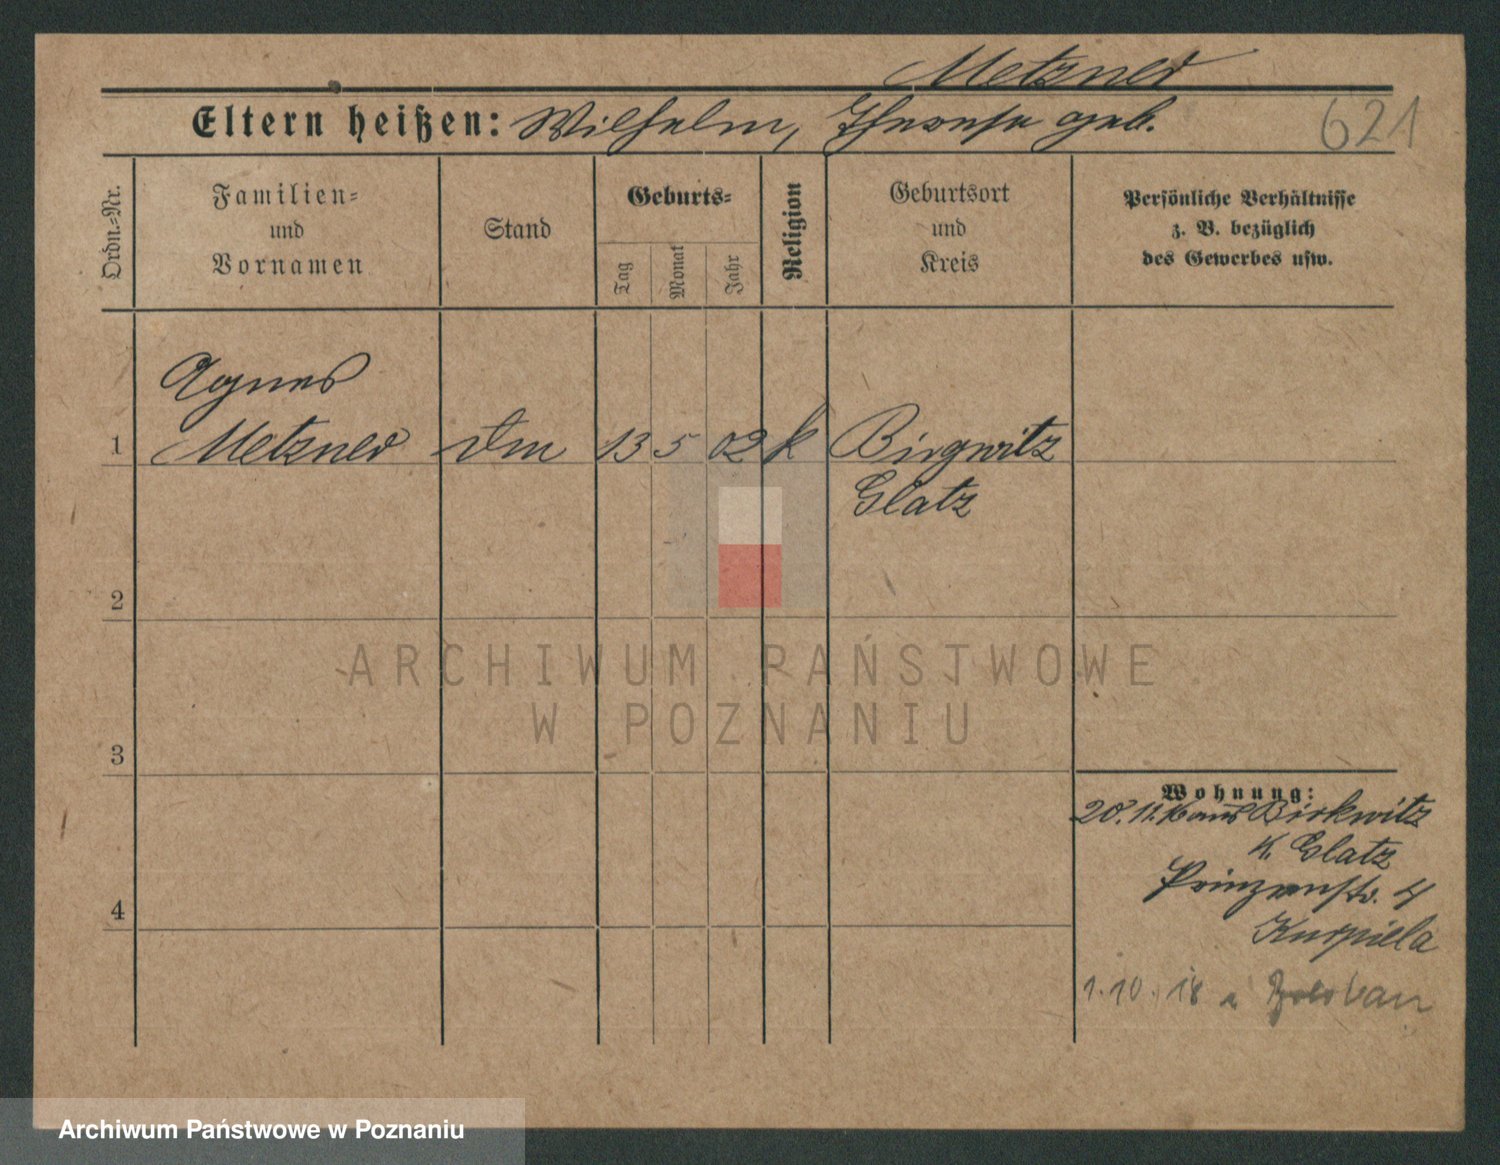 Metzner
Eltern heißen: Wilhelm, Therese geb.
621
Ordn.-Nr.
Familien-
und
Vornamen
Stand
Geburts-
Tag
Monat
Jahr
Religion
Geburtsort
und
Kreis
Persönliche Verhältnisse
z. B. bezüglich
des Gewerbes usw.
Agnes
1 Metzner Dm 13 5 02 k Birgwitz
Glatz
2
3
4
ARCHIWUM PAŃSTWOWE
W POZNANIU
Wohnung:
20.11.16 aus Birkwitz
K. Glatz
Prinzenstr. 4
Kurpiela
1.10.18 n
Archiwum Państwowe w Poznaniu